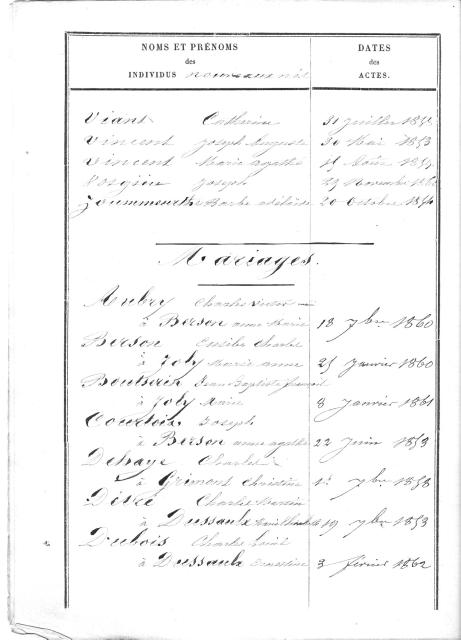 NOMS ET PRÉNOMS
des
INDIVIDUS nouveaux nés
DATES
des
ACTES.
Viant Catherine 31 juillet
Vincent Joseph Auguste 30 Mai 1853
Vincent Marie Agathe
Joseph 29 Novembre
Barbe adélaïde 20 Octobre
Mariages.
Aubry Charles Victor
à Berson anne Marie 18 7bre 1860
Berson Emile Charles
à Joly Marie anne 25 Janvier 1860
Jean Baptiste
à Joly Marie 8 Janvier 1861
Courtois Joseph
à Berson anne agathe 22 Juin 1853
Dehaye Charles
à Grimont Christine 7bre 1858
Charles
à Dussaulx 19 7bre 1853
Dubois Charles Louis
à Dussaulx Ernestine 3 février 1862